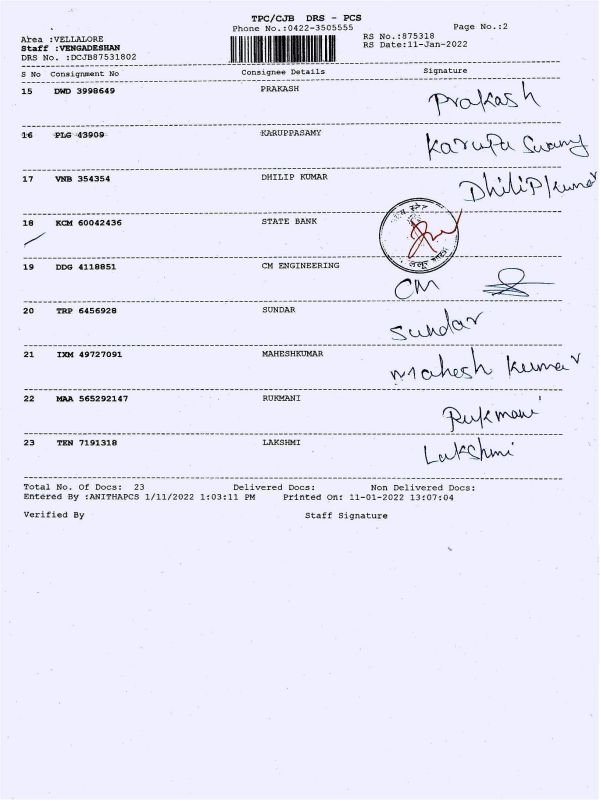 TPC/CJB DRS - PCS
Phone No.:0422-3505555 Page No.:2
Area :VELLALORE RS No.:875318
Staff :VENGADESHAN RS Date:11-Jan-2022
DRS No. :DCJB87531802
S No Consignment No Consignee Details Signature
15 DWD 3998649 PRAKASH Prakash
16 PLG 43909 KARUPPASAMY Karupa Swamy
17 VNB 354354 DHILIP KUMAR Dhilip kumar
18 KCM 60042436 STATE BANK
19 DDG 4118851 CM ENGINEERING CM
20 TRP 6456928 SUNDAR Sundar
21 IXM 49727091 MAHESHKUMAR Mahesh kumar
22 MAA 565292147 RUKMANI Rukmani
23 TEN 7191318 LAKSHMI Lakshmi
Total No. Of Docs: 23 Delivered Docs: Non Delivered Docs:
Entered By :ANITHAPCS 1/11/2022 1:03:11 PM Printed On: 11-01-2022 13:07:04
Verified By Staff Signature